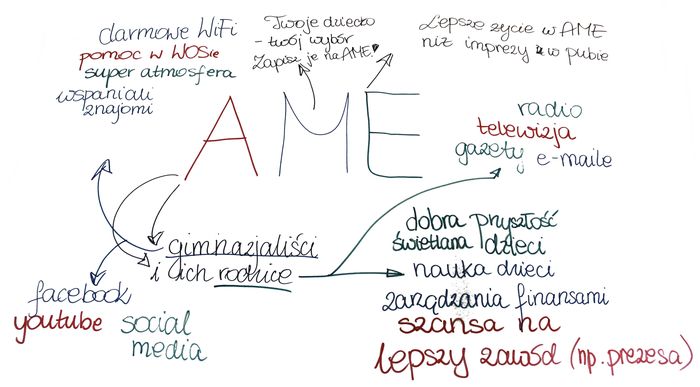 darmowe WiFi
pomoc w WOSie
super atmosfera
wspaniali
znajomi
Twoje dziecko
- twój wybór
Zapisz je na AME!
Lepsze życie w AME
niż imprezy w pubie
AME
radio
telewizja
gazety e-maile
gimnazjaliści
i ich rodzice
dobra przyszłość
świetlana dzieci
nauka dzieci
zarządzania finansami
szansa na
lepszy zawód (np. prezesa)
facebook
youtube social
media